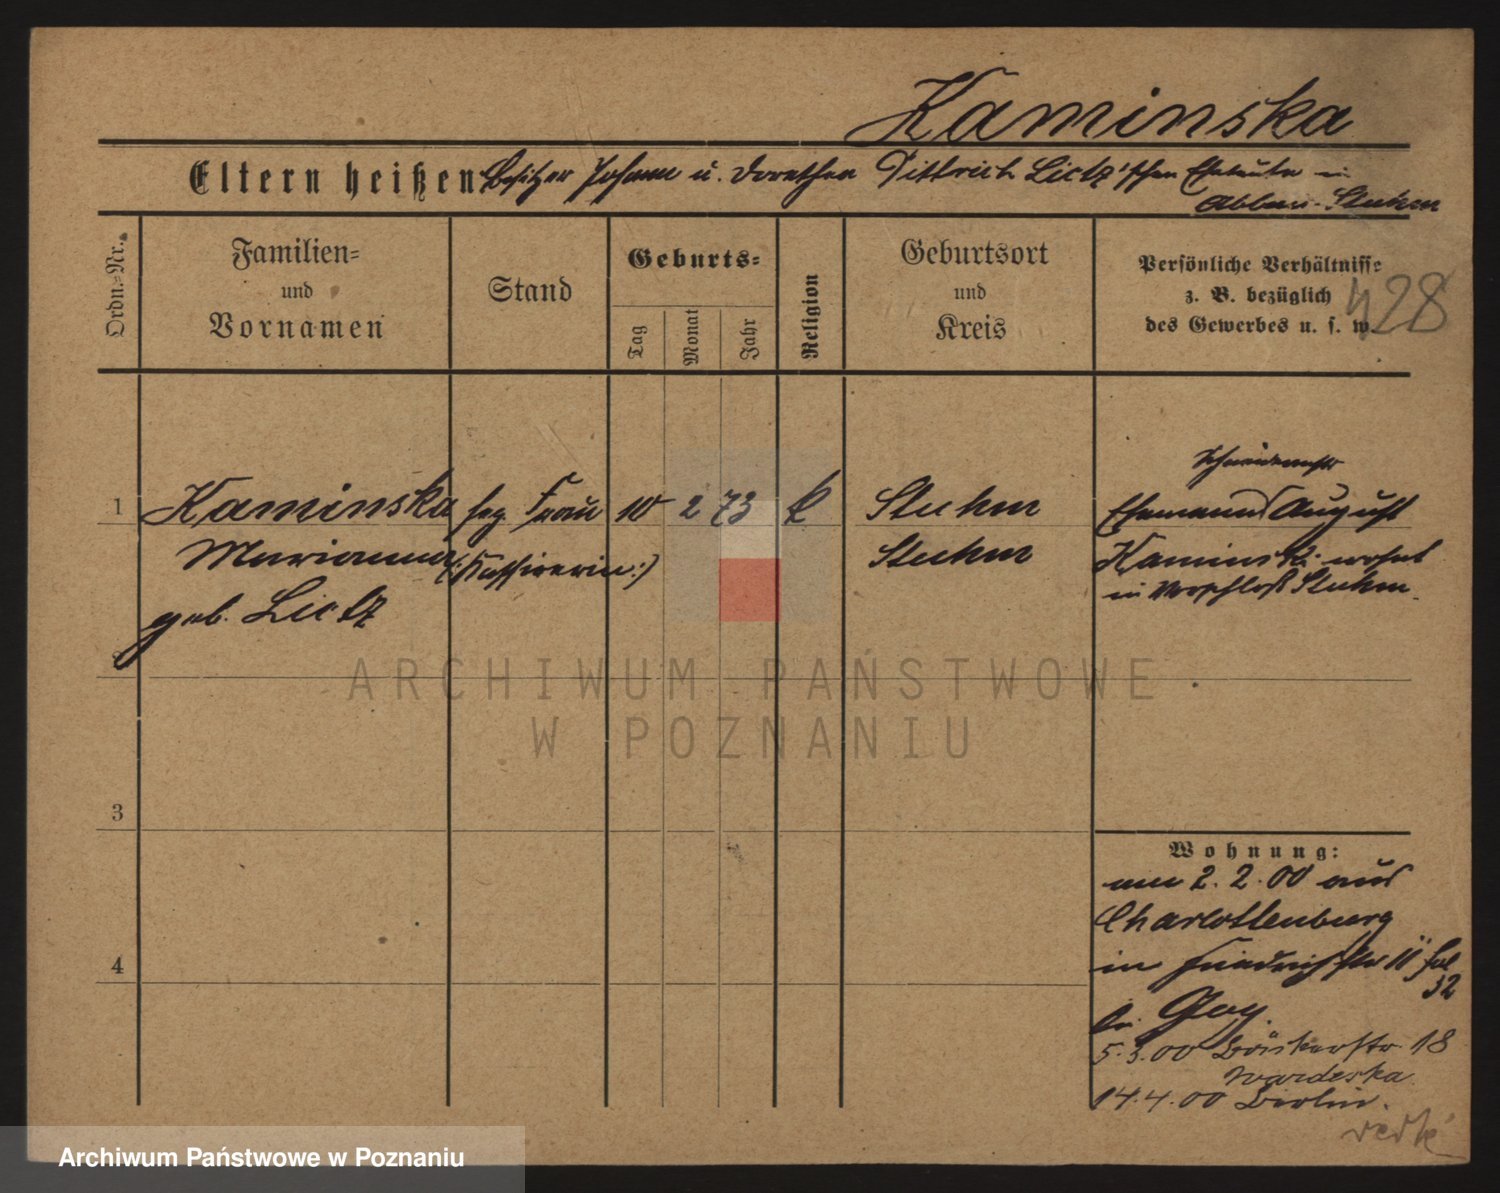 Kaminska
Eltern heißen Besitzer Johann u. Dorothea Dittrich Lietz'schen Eheleute in
Abbau-Stuhm
Ordn.-Nr.
Familien-
und
Vornamen
Stand
Geburts-
Tag
Monat
Jahr
Religion
Geburtsort
und
Kreis
Persönliche Verhältnisse
z. B. bezüglich
des Gewerbes u. s. w.
428
1 Kaminska
Marianna
geb. Lietz
Frau
(:Kassirerin:)
10 2 73 k
Stuhm
Stuhm
Ehemann August
Kaminski wohnt
in Vorschloß Stuhm.
3
4
Wohnung:
am 2.2.00 aus
Charlottenburg
in Friedrichstr 11
32
bei Gay.
5.3.00 Bäckerstr. 18
14.4.00 Berlin.
ARCHIWUM PAŃSTWOWE
W POZNANIU
Archiwum Państwowe w Poznaniu